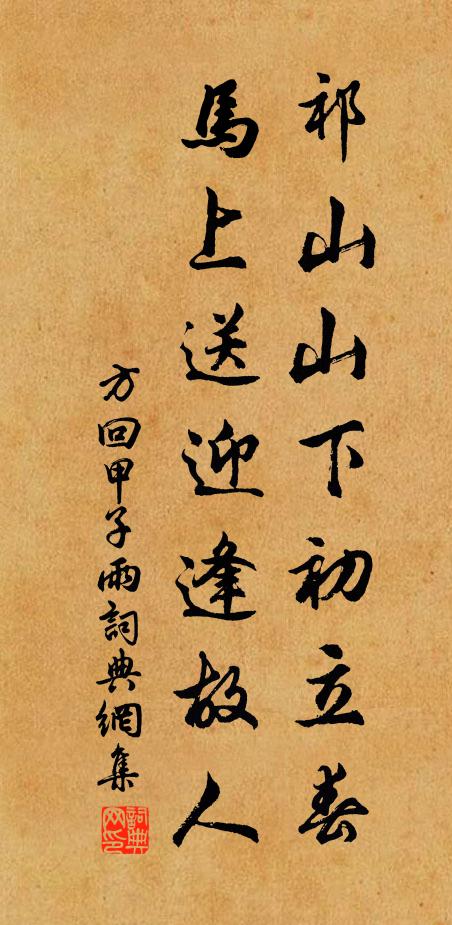 祁山山下初立春
馬上送迎逢故人
方回甲子雨詞典網集
詞典网印